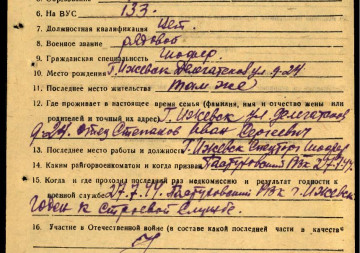 6. На ВУС 133.
7. Должностная квалификация нет.
8. Военное звание рядовой
9. Гражданская специальность шофер.
10. Место рождения г. Ижевск Делегатская ул. д-24
11. Последнее место жительства там же
12. Где проживает в настоящее время семья (фамилия, имя и отчество жены или
родителей и точный их адрес) г. Ижевск ул делегатская
д-24. Отец Степанов Иван Сергеевич
13. Последнее место работы и должность г. Ижевск Спецторг шофер
14. Каким райгорвоенкоматом и когда призван Пастуховский РВК 27.7.44.
15. Когда и где проходил последний раз медкомиссию и результат годности к
военной службе 27.7.44. Пастуховский РВК г. Ижевск
годен к строевой службе.
16. Участие в Отечественной войне (в составе какой последней части и в качестве